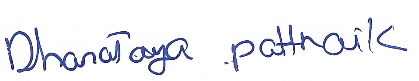 Dharataya pattnaik